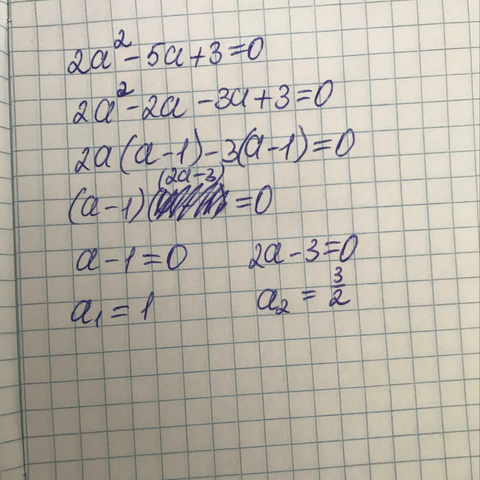 2a² - 5a + 3 = 0
2a² - 2a - 3a + 3 = 0
2a(a-1) - 3(a-1) = 0
(a-1)(2a-3) = 0
a - 1 = 0 2a - 3 = 0
a₁ = 1 a₂ = 3/2